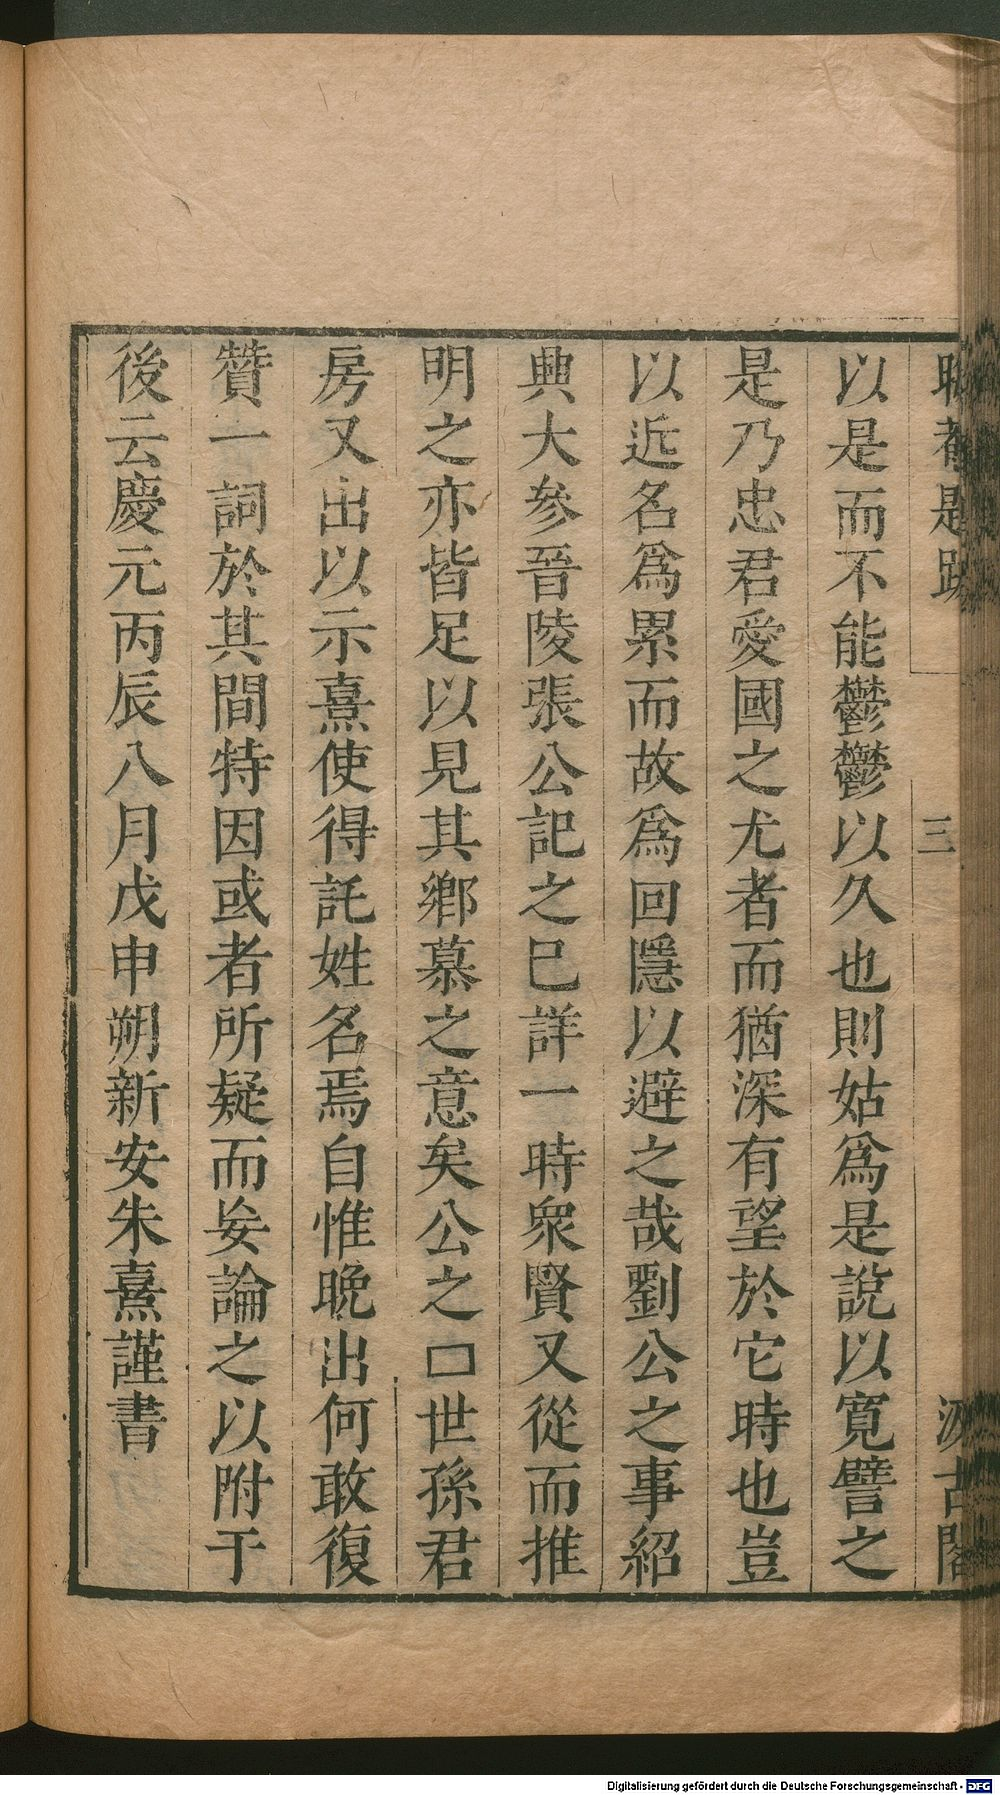 是跋
三
汲古閣
以是而不能鬱鬱以久也則姑爲是說以寬譬之
是乃忠君愛國之尤者而猶深有望於它時也豈
以近名爲累而故爲回隱以避之哉劉公之事紹
興大參晉陵張公記之巳詳一時衆賢又從而推
明之亦皆足以見其鄉慕之意矣公之口世孫君
房又出以示熹使得託姓名焉自惟晚出何敢復
贊一詞於其間特因或者所疑而妄論之以附于
後云慶元丙辰八月戊申朔新安朱熹謹書
Digitalisierung gefördert durch die Deutsche Forschungsgemeinschaft - DFG